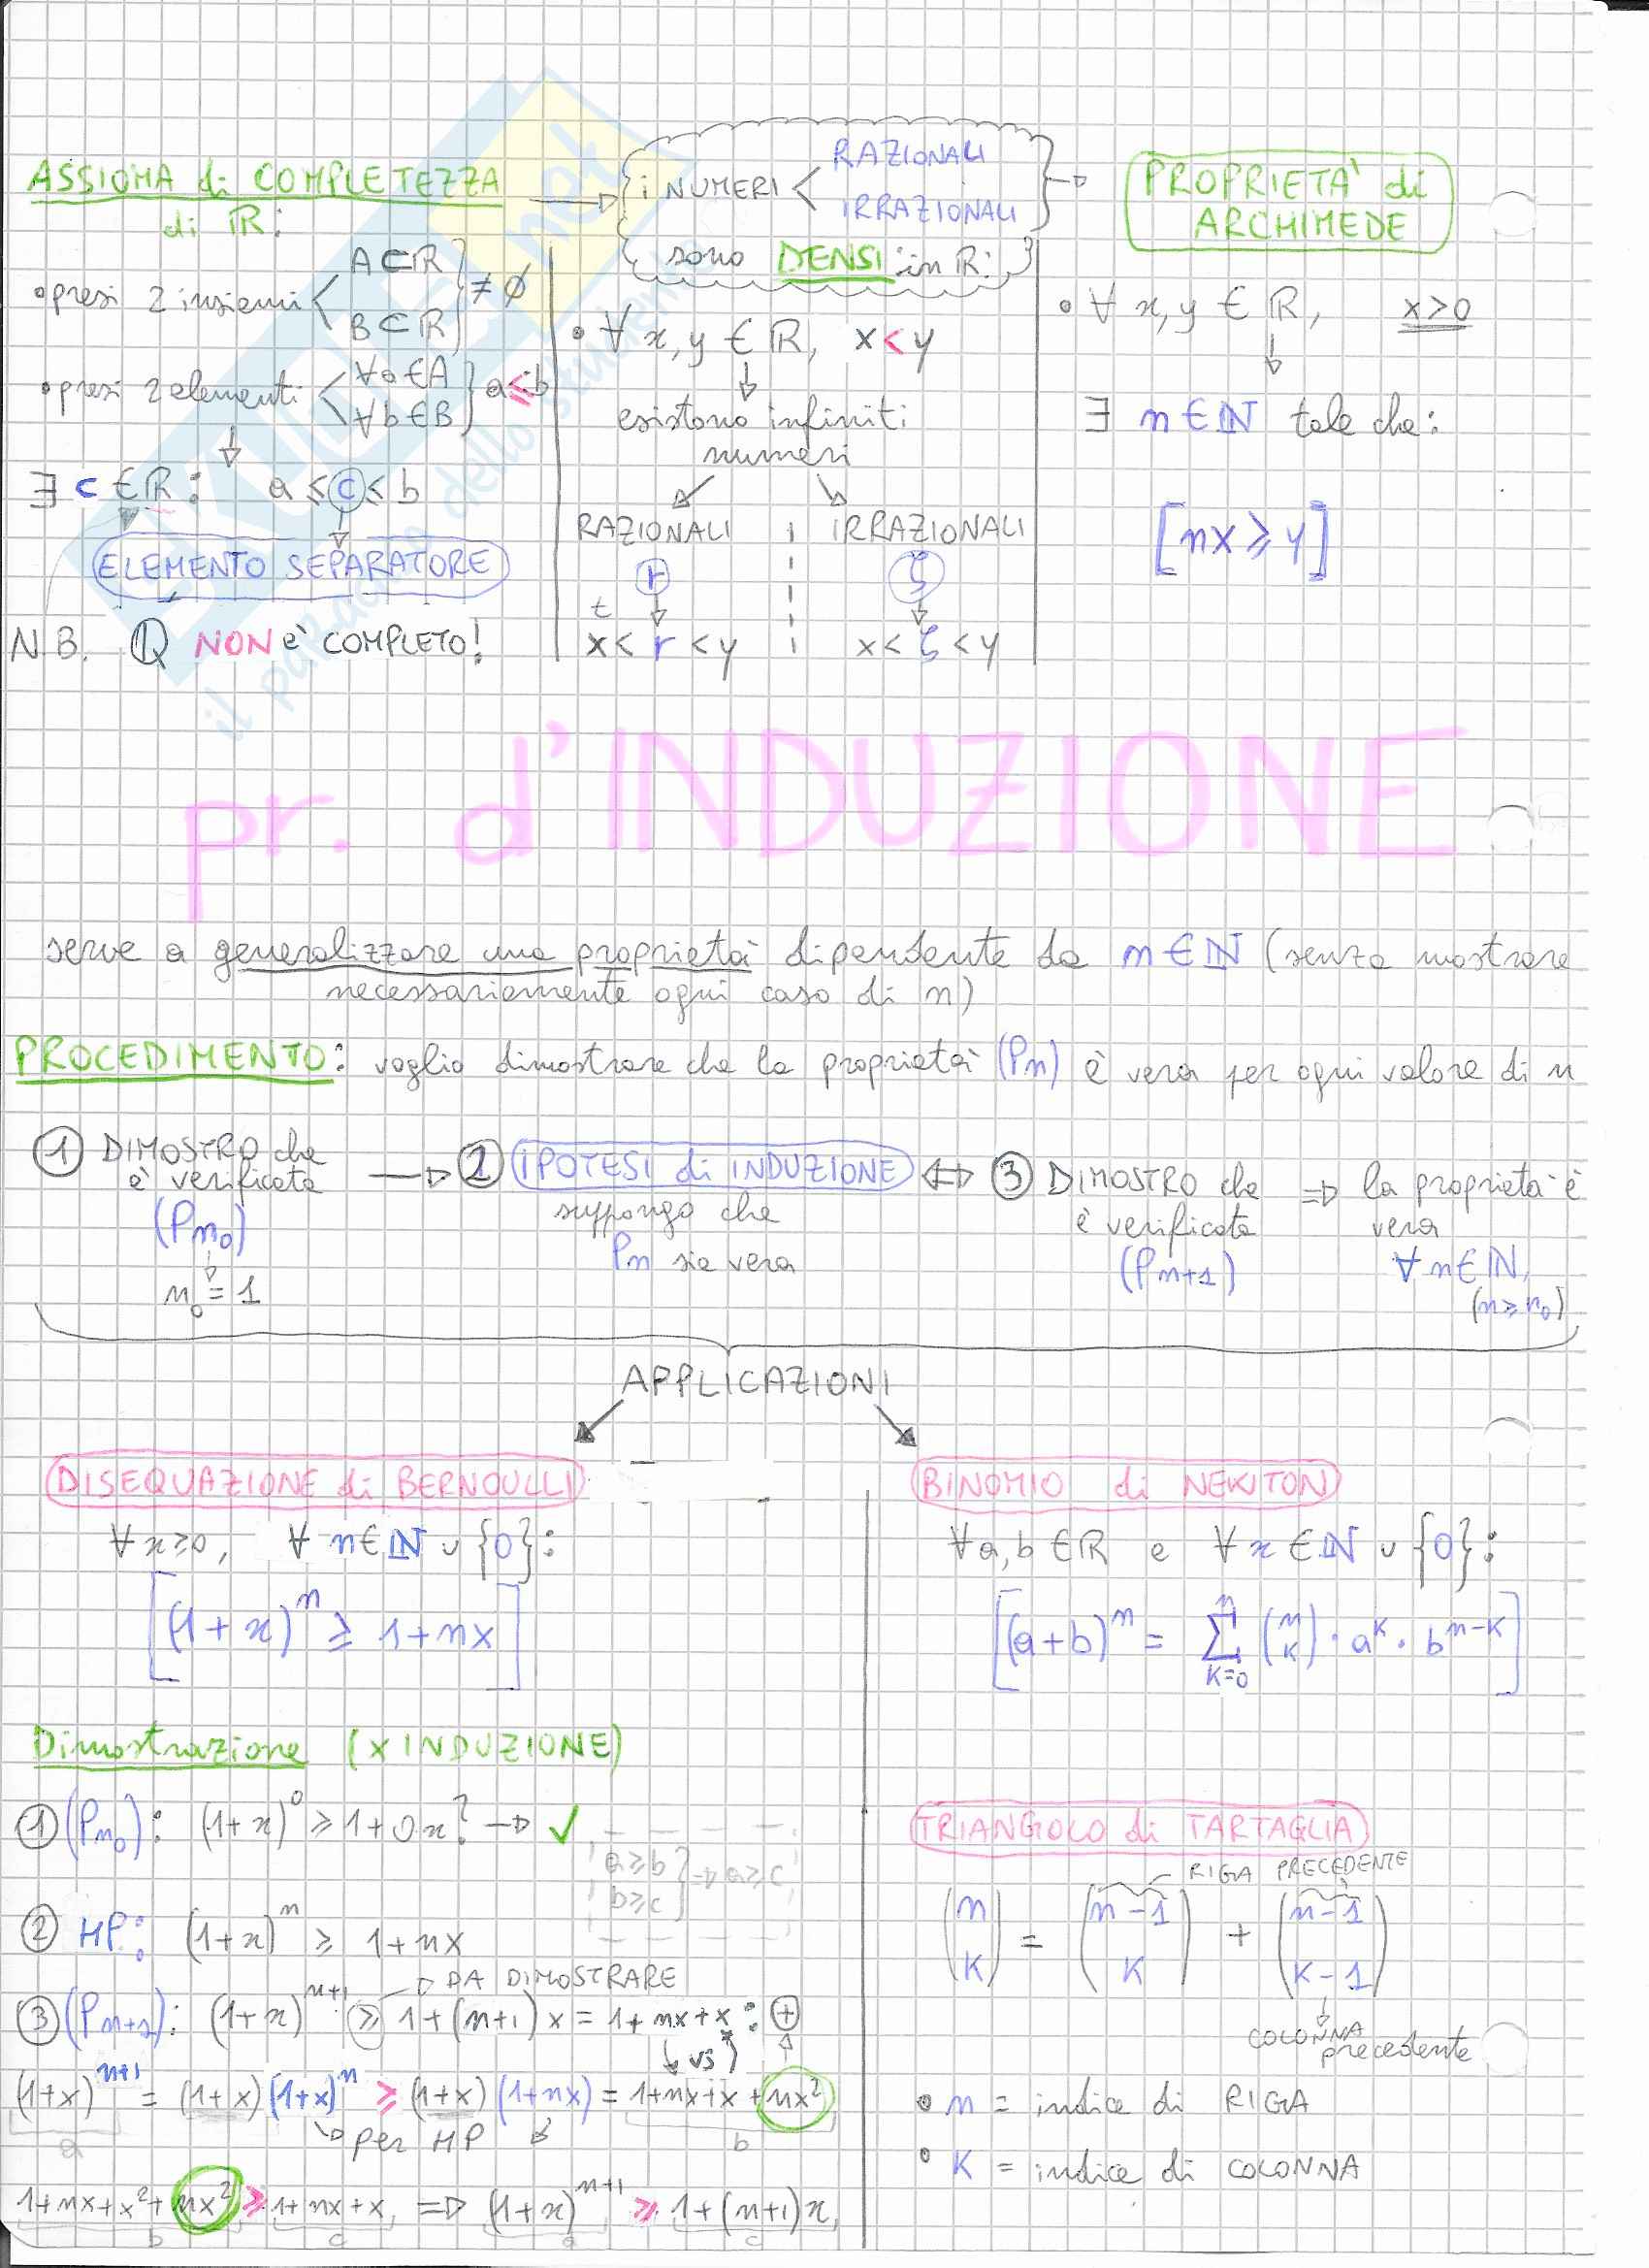 ASSIOMA di COMPLETEZZA
di ℝ:
• presi 2 insiemi < A⊂ℝ B⊂ℝ } ≠ ∅
• presi 2 elementi < ∀a∈A ∀b∈B } a≤b
∃ c ∈ ℝ : a ≤ c ≤ b
ELEMENTO SEPARATORE
N.B. ℚ NON è COMPLETO!
i NUMERI < RAZIONALI IRRAZIONALI
sono DENSI in ℝ:
• ∀ x, y ∈ ℝ, x < y
esistono infiniti
numeri
RAZIONALI
r
t
x < r < y
IRRAZIONALI
ξ
x < ξ < y
PROPRIETÀ di
ARCHIMEDE
• ∀ x, y ∈ ℝ, x>0
∃ n ∈ ℕ tale che:
[nx ≥ y]
il paradiso dello studente
pr. d'INDUZIONE
serve a generalizzare una proprietà dipendente da n ∈ ℕ (senza mostrare
necessariamente ogni caso di n)
PROCEDIMENTO: voglio dimostrare che la proprietà (Pn) è vera per ogni valore di n
① DIMOSTRO che
è verificata
(Pn₀)
n₀ = 1
→ ② IPOTESI di INDUZIONE
suppongo che
Pn sia vera
↔ ③ DIMOSTRO che
è verificata
(Pn+1)
⇒ la proprietà è
vera
∀ n∈ℕ,
(n ≥ n₀)
APPLICAZIONI
DISEQUAZIONE di BERNOULLI
∀ x≥0, ∀ n∈ℕ ∪ {0}:
[(1+x)ⁿ ≥ 1+nx]
Dimostrazione (x INDUZIONE)
① (Pn₀): (1+x)⁰ ≥ 1+0x? → ✓
a≥b
b≥c } → a≥c
② HP: (1+x)ⁿ ≥ 1+nx
DA DIMOSTRARE
③ (Pn+1): (1+x)ⁿ⁺¹ ≥ 1+(n+1)x = 1+nx+x : ⊕
vs
(1+x)ⁿ⁺¹ = (1+x)(1+x)ⁿ ≥ (1+x)(1+nx) = 1+nx+x+nx²
a
per HP
b
1+nx+x²+nx² ≥ 1+nx+x ⇒ (1+x)ⁿ⁺¹ ≥ 1+(n+1)x
b c a c
BINOMIO di NEWTON
∀ a,b ∈ ℝ e ∀ x ∈ ℕ ∪ {0}:
[(a+b)ⁿ = Σₖ₌₀ⁿ (n k) · aᵏ · bⁿ⁻ᵏ]
TRIANGOLO di TARTAGLIA
RIGA PRECEDENTE
(n K) = (n-1 K) + (n-1 K-1)
COLONNA
precedente
• n = indice di RIGA
• K = indice di COLONNA